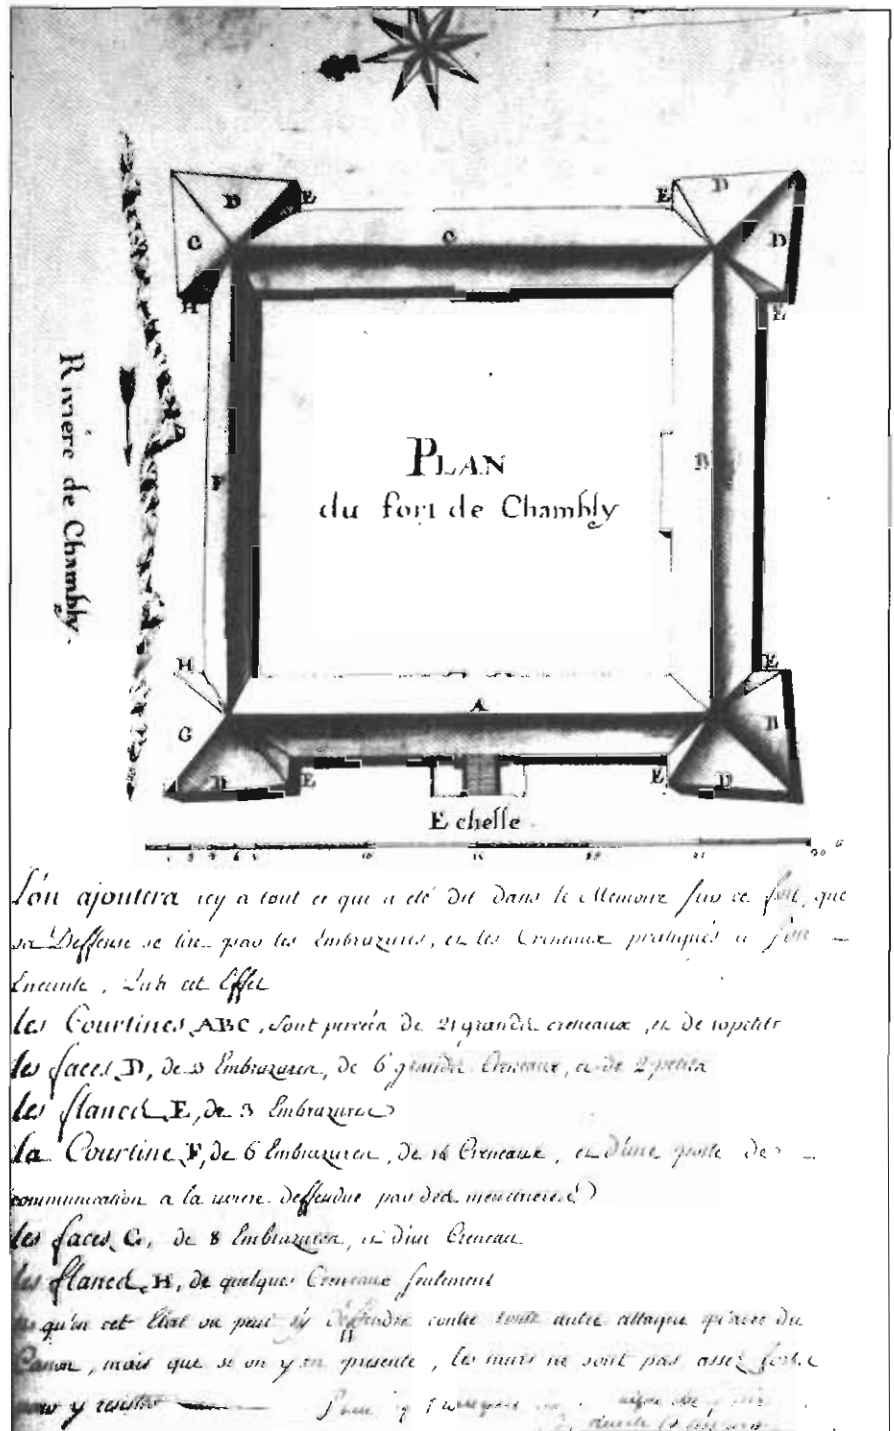 D
E
E
D
G
C
D
H
E
Rivière de Chambly.
PLAN
du fort de Chambly
F
B
H
E
A
G
D
E
E
D
Echelle
10
15
L'on ajoutera icy a tout ce qui a été dit dans le Memoire sur ce fort, que
sa Deffense se tire par les Embrazures, et les Creneaux pratiqués a son
Enceinte, à cet Effet
les Courtines ABC, sont percéés de 21 grands creneaux, et de 10 petits
les faces D, de 3 Embrazures, de 6 grands Creneaux, et de 2 petits
les flancs E, de 3 Embrazures
la Courtine F, de 6 Embrazures, de 16 Creneaux, et d'une porte de
communication a la riviere deffendue par des meurtrieres
les faces G, de 8 Embrazures, et d'un Creneau
les flancs H, de quelques Creneaux seulement
qu'en cet Etat on peut s'y deffendre contre toute autre attaque qu'avec du
Canon, mais que si on y en presente, les murs ne sont pas assez forts
pour y resister